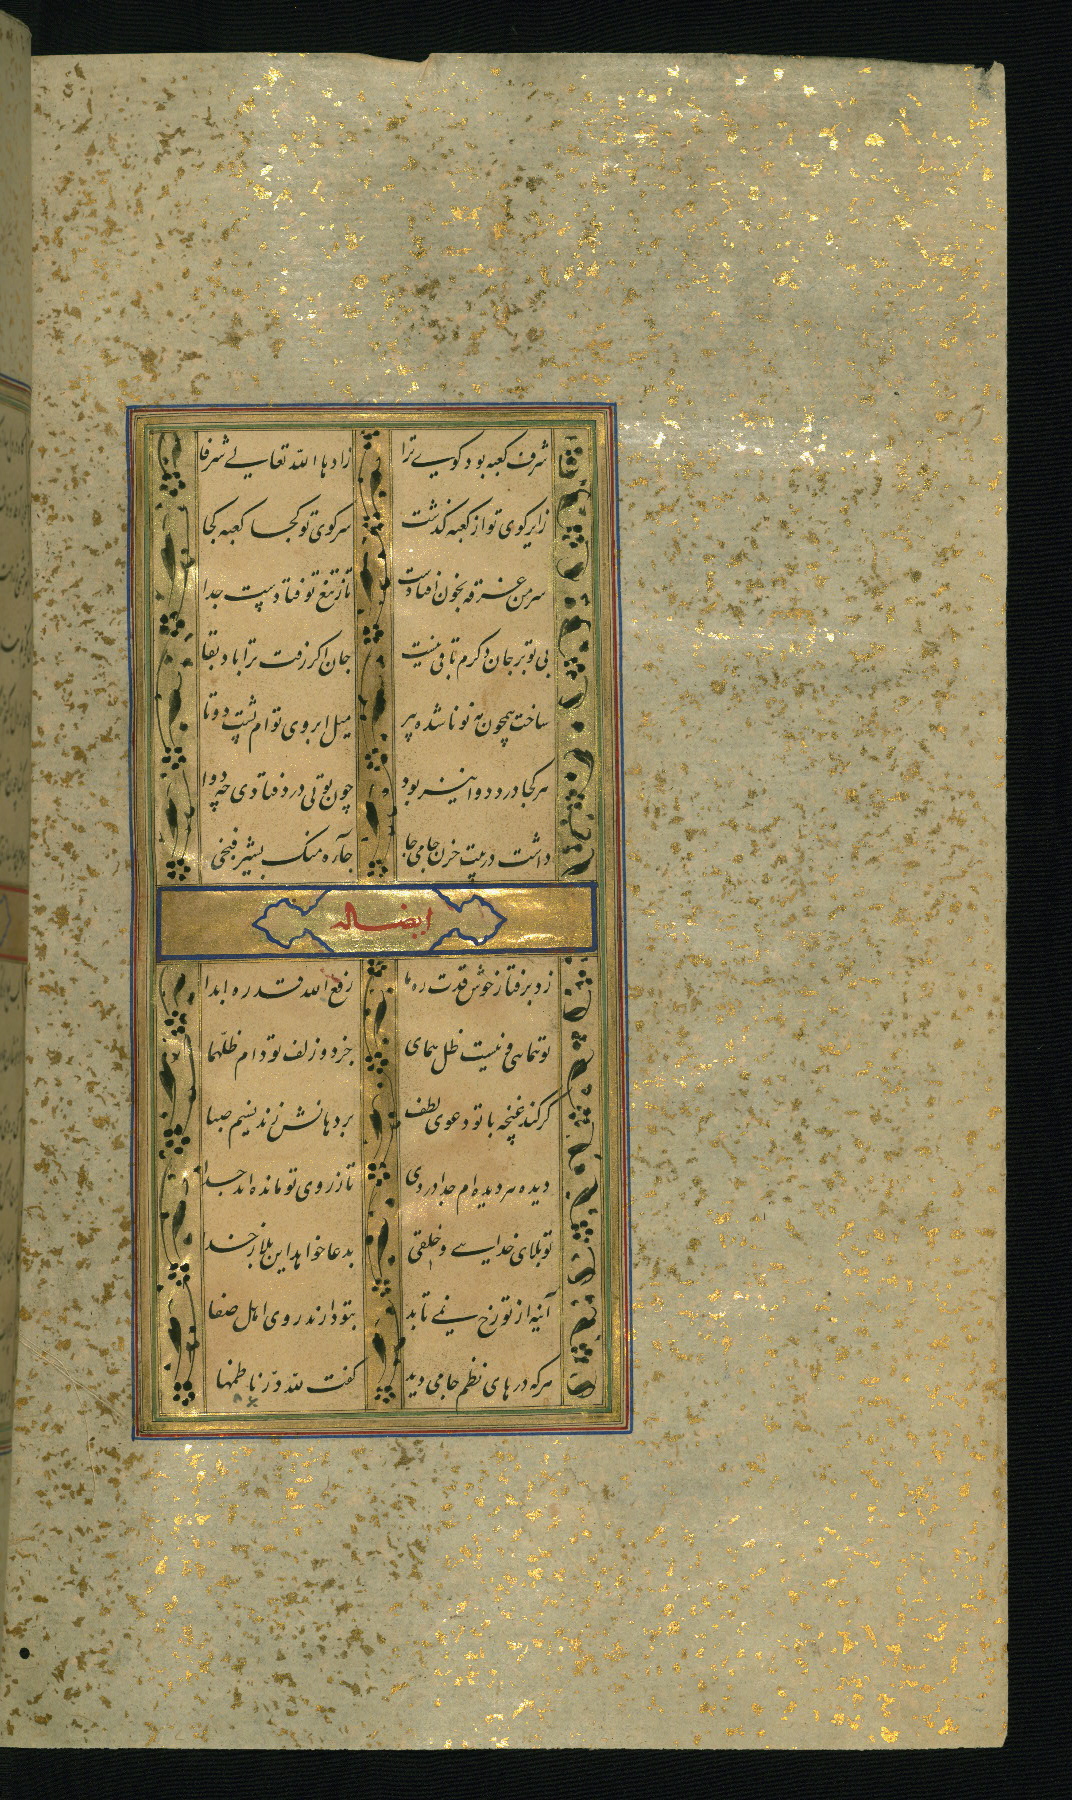 شرف کعبه بود کوی ترا زادها الله تعالی شرفا
زایر کوی تو از کعبه گذشت سر کوی تو کجا کعبه کجا
سر من غرقه بخون افتادست تا ز تیغ تو فتادست جدا
بی تو بر جان دگرم تابی نیست جان اگر رفت ترا باد بقا
ساخت همچون مه نو ناشده پیر میل ابروی توام پشت دوتا
هر کجا درد دوا نیز بود چون تویی درد فتادی چه دوا
داشت در بیت حزن جامی جا جاءه منک بشیر فنجی
ایضا له
زد برفتار خوش قدت ره ما رفع الله قدره ابدا
تو همایی و نیست ظل همای جز دو زلف تو دام ظلهما
گر کند غنچه با تو دعوی لطف بر دهانش زند نسیم صبا
دیده هر دیده‌ام جدا دردی تا ز روی تو مانده‌اند جدا
تو بلای خدایی و خلقی بدعا خواهد این بلا ز خدا
آینه از تو رخ نمی تابد بتو دارند روی اهل صفا
هر که درهای نظم جامی دید گفت لله در ناظمها